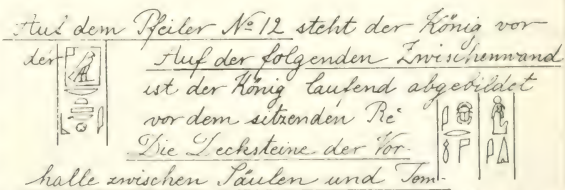 Auf dem Pfeiler № 12 steht der König vor
der
Auf der folgenden Zwischenwand
ist der König laufend abgebildet
vor dem sitzenden Rē
Die Decksteine der Vor-
halle zwischen Säulen und Tem-